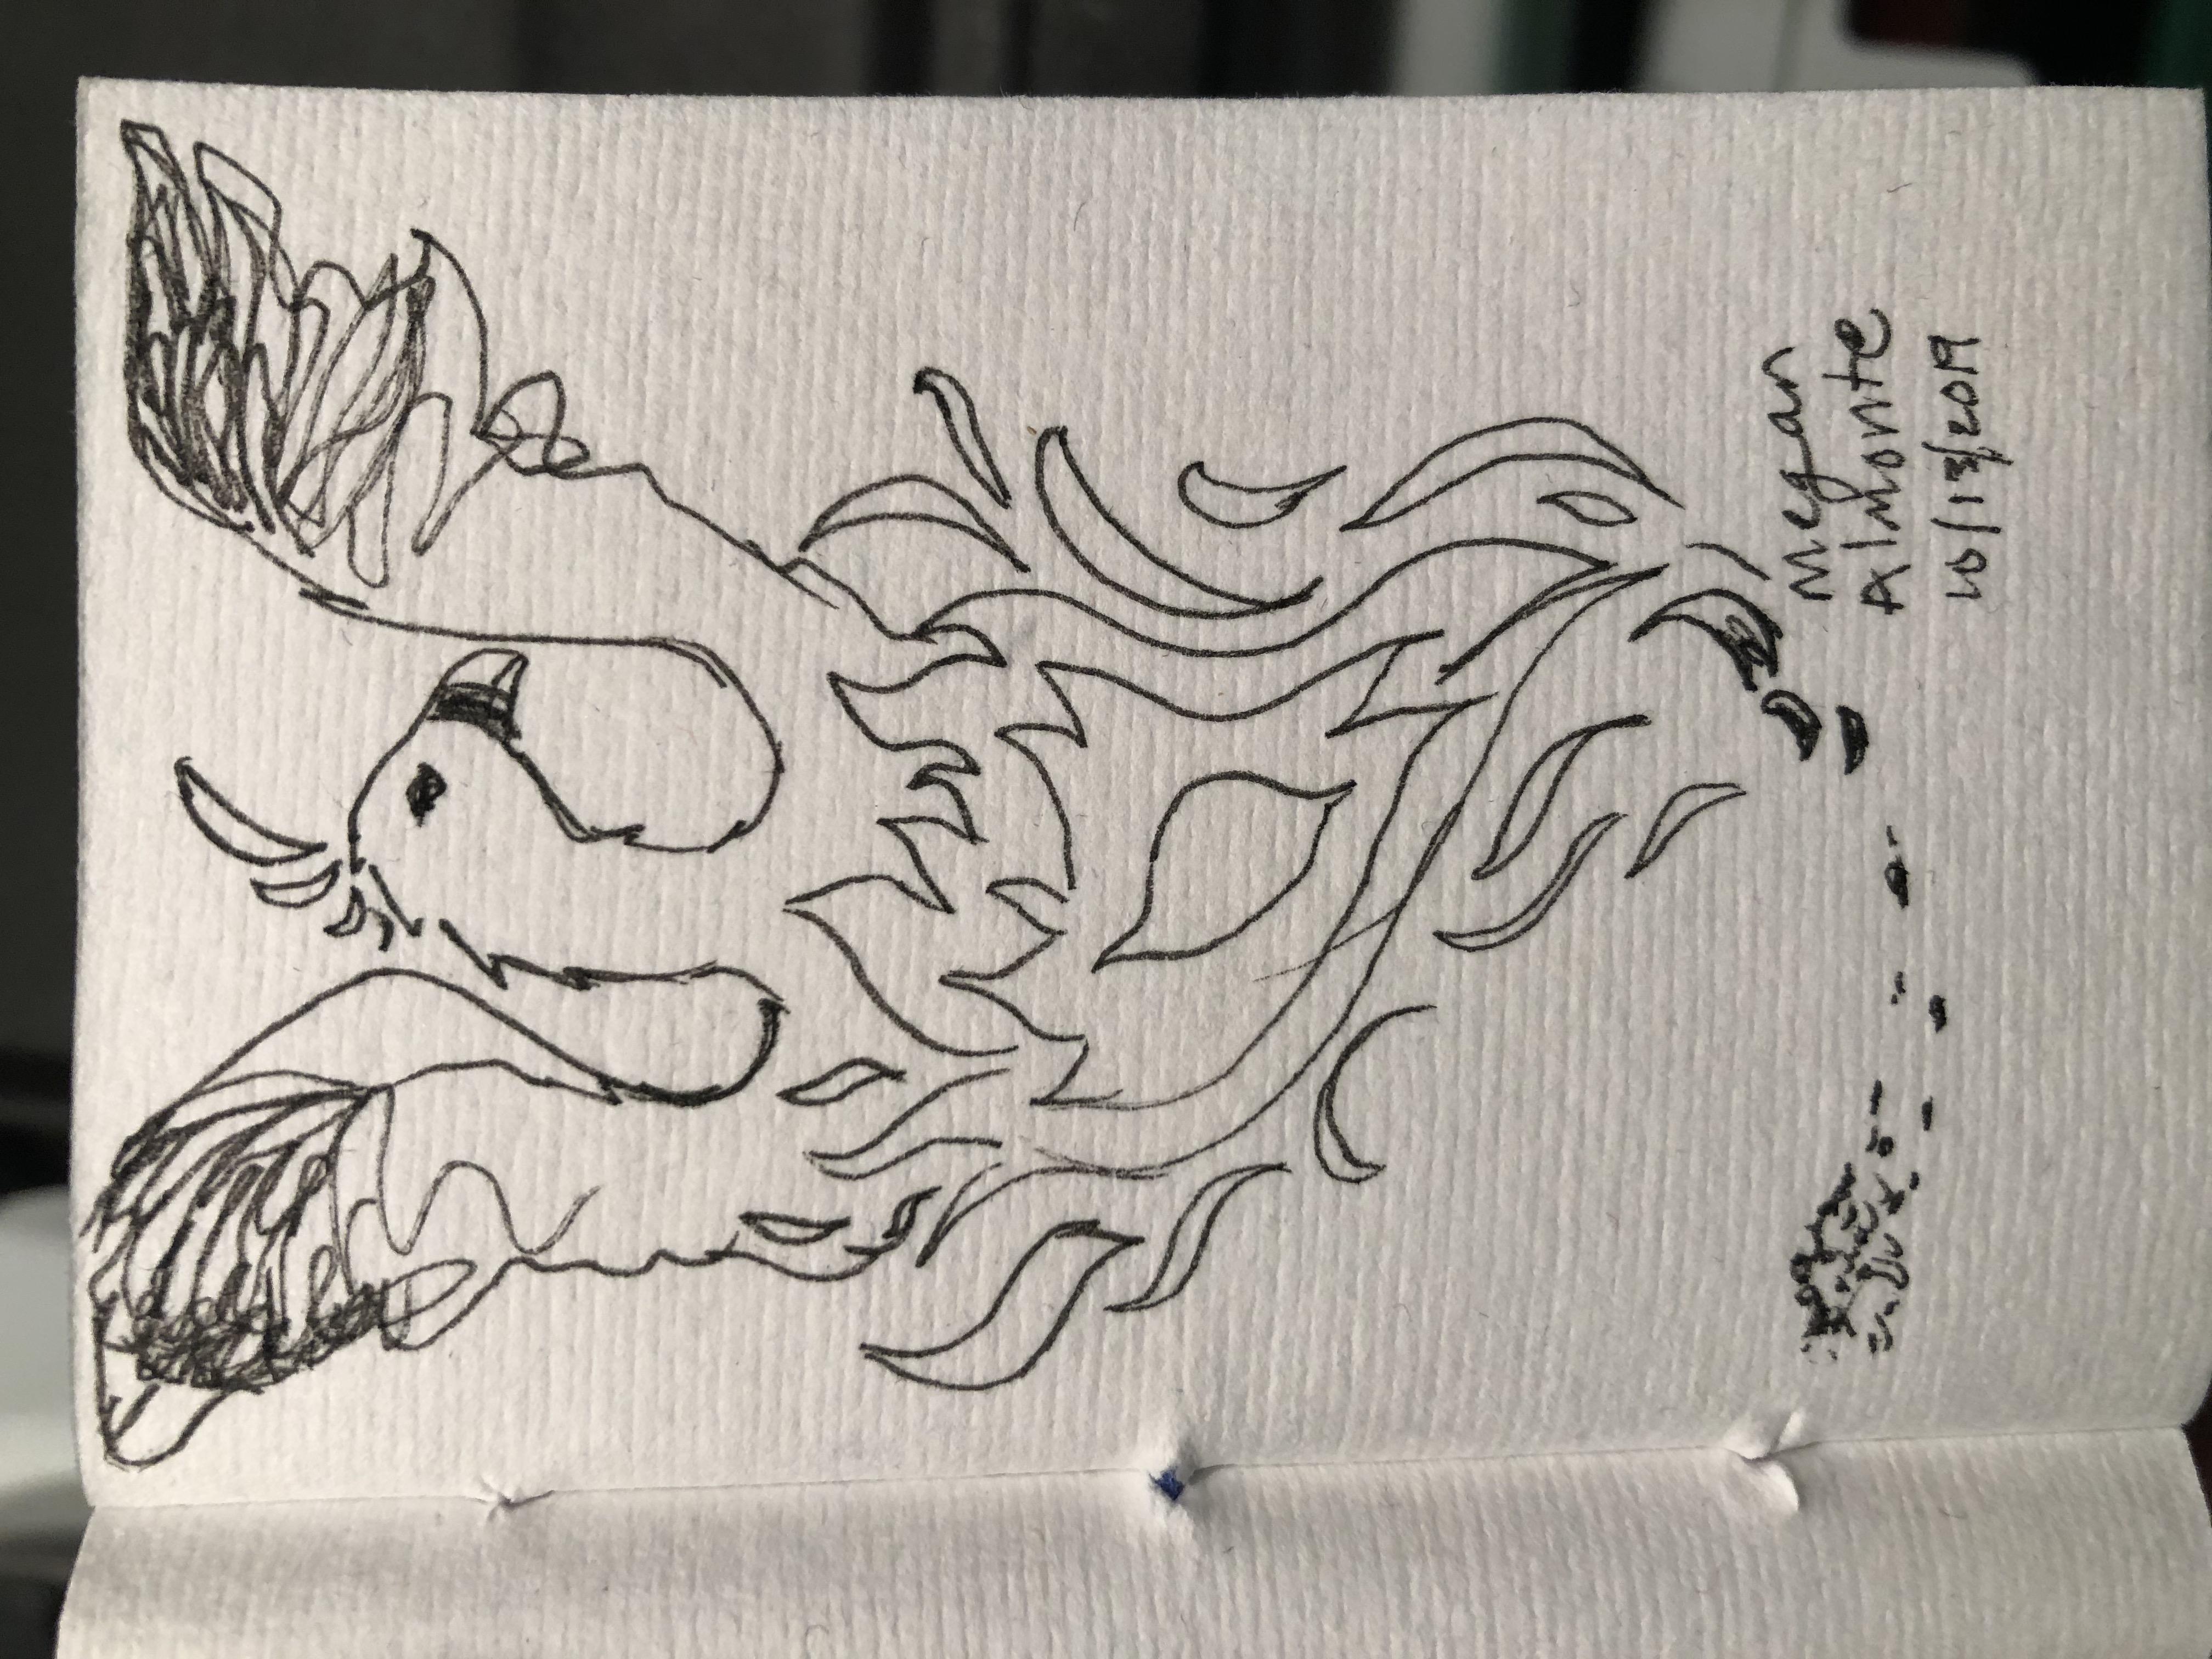 Megan
Almonte
10/13/2019